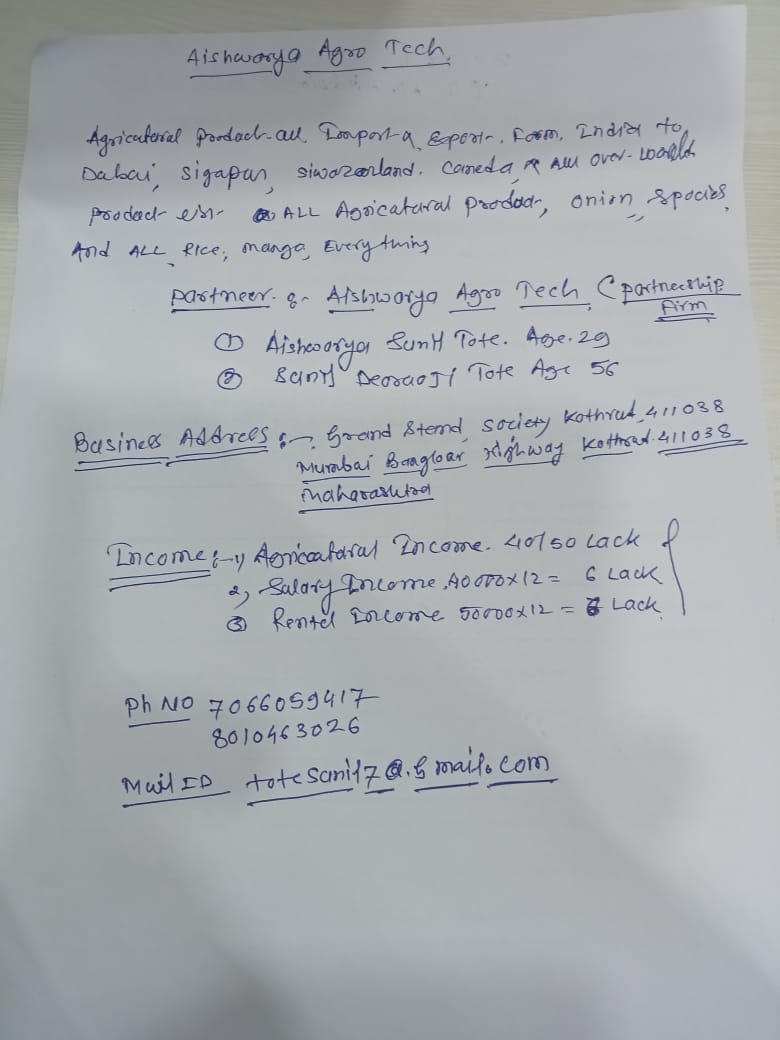 Aishwarya Agro Tech.
Agricutural Prodact-all Import & Export. From. India to
Dubai, Sigapur, siwazerland. Caneda, & All over-world
Prodact ALL Agricatural Prodact, onion, Spocies,
And ALL Rice, manga, Everything
Partneer :- Aishwarya Agro Tech (partnership
Firm
① Aishwarya Sunil Tote. Age. 29
② Sunil Deoraoji Tote Age 56
Business Address :- Grand Stend, society Kothrud, 411038
Mumbai Bangloar Highway Kothrud. 411038
Maharashtra
Income :- 1) Agricatural Income. 40/50 Lack
2, Salary Income, 40000x12 = 6 Lack
③ Rentel Income 50000x12 = 6 Lack.
Ph NO 7066059417
8010463026
Mail ID totesanil7@.Gmail.com